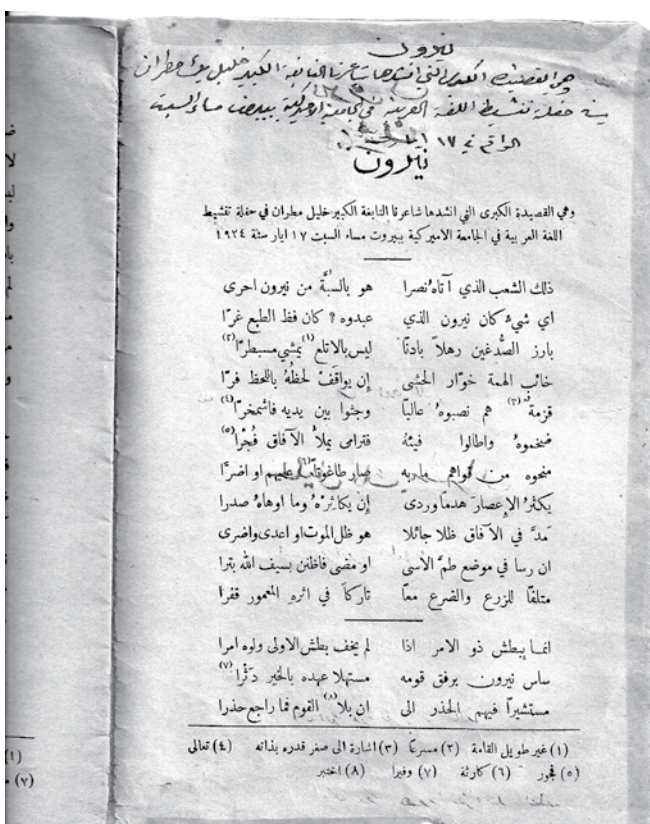 نيرون
وهي القصيدة الكبرى التي انشدها شاعرنا النابغة الكبير خليل بك مطران
في حفلة تنشيط اللغة العربية في الجامعة الاميركية ببيروت مساء السبت
الواقع في ١٧
نيرون
وهي القصيدة الكبرى التي انشدها شاعرنا النابغة الكبير خليل مطران في حفلة تنشيط
اللغة العربية في الجامعة الاميركية ببيروت مساء السبت ١٧ ايار سنة ١٩٢٤
ذلك الشعب الذي آتاه نصرا هو بالسبَّة من نيرون احرى
اي شيءٍ كان نيرون الذي عبدوه ? كان فظ الطبع غرّا
بارز الصُّدغين رهلاً بادنًا ليس بالاتلع (١) يمشي مسبطرّا (٢)
خائب الهمة خوّار الحشى إن يواقَفْ لحظهُ باللحظ فرّا
قزمة (٣) هم نصبوهُ عاليًا وجثوا بين يديه فاشمخرّا (٤)
ضخموهُ واطالوا فيئهُ فترامى يملأُ الآفاق فُجْرا (٥)
منحوه من قواهم ما به صار طاغوتًا (٦) عليهم او اضرَّا
يكثرُ الإعصارَ هدمًا وردىً إن يكاثرْهُ وما اوهاهُ صدرا
مَدَّ في الآفاق ظلا جائلا هو ظل الموت او اعدى واضرى
ان رسا في موضع طمَّ الاسى او مضى فاظنن بسيف الله بترا
متلفًا للزرع والضرع معًا تاركاً في اثرهِ المعمور قفرا
انمـا يبطش ذو الامر اذا لم يخف بطش الاولى ولوه امرا
ساس نيرون برفق قومه مستهلا عهده بالخير دَثْرا (٧)
مستشيرًا فيهم الحذر الى ان بلا (٨) القوم فما راجع حذرا
(١) غير طويل القامة (٢) مسرعًا (٣) اشارة الى صغر قدره بذاته (٤) تعالى
(٥) فجور (٦) كارثة (٧) وفيرا (٨) اختبر